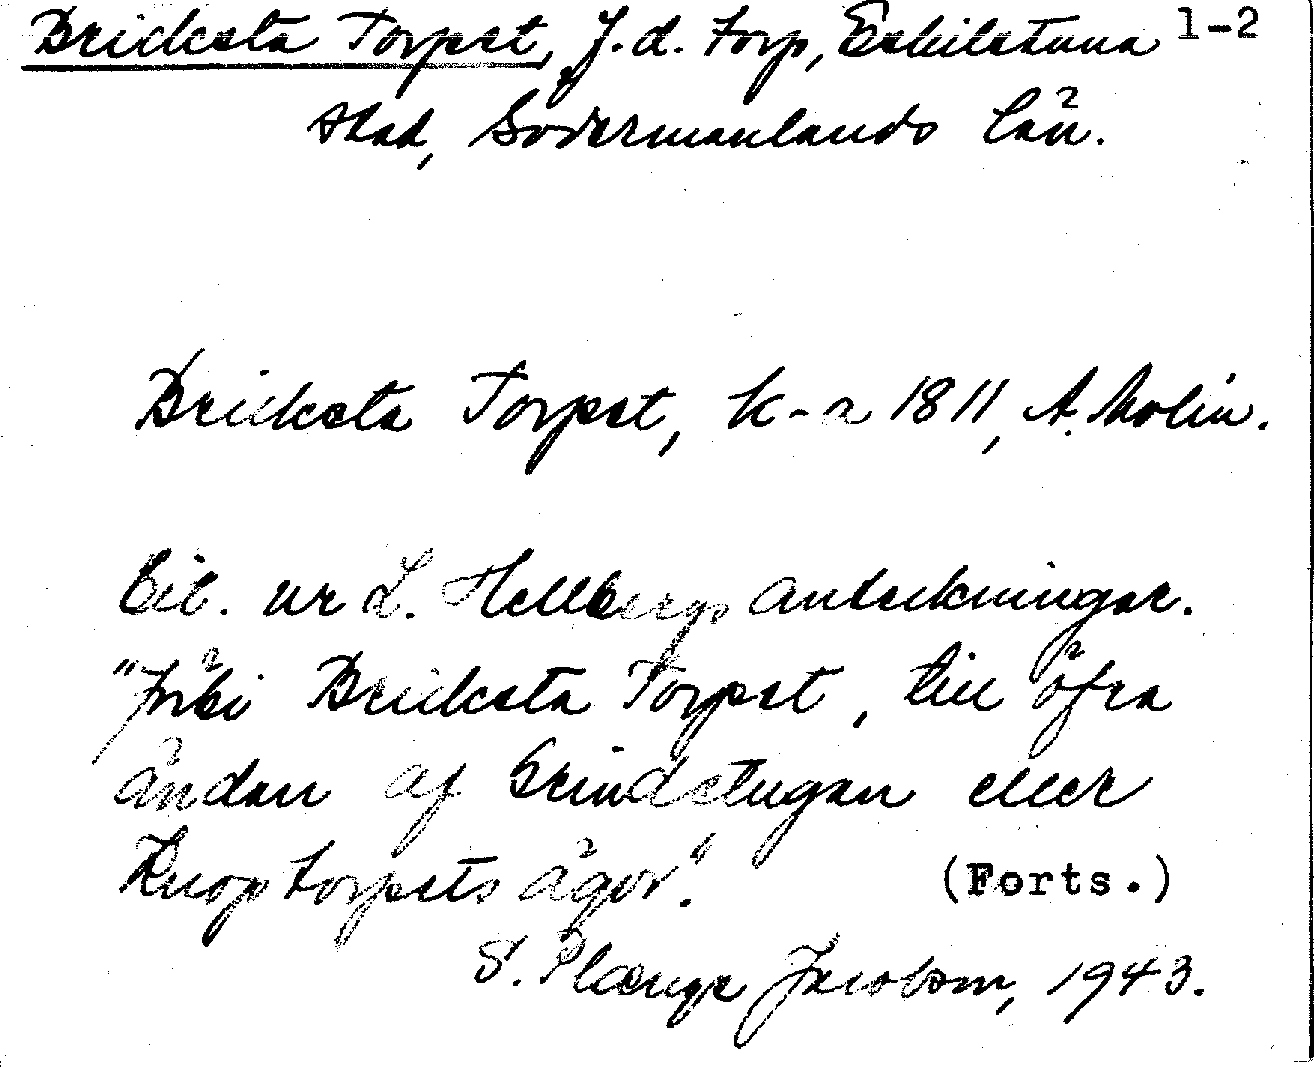 Bricksta Torpet, f.d. torp, Eskilstuna 1-2
stad, Södermanlands län.
Bricksta Torpet, k-a 1811, A. Molin.
Cit. ur L. Hellbergs anteckningar.
"förbi Bricksta Torpet, till öfra
ändan af Grindstugan eller
Knoptorpets ägor".
(Forts.)
S. Plænge Jacobson, 1943.